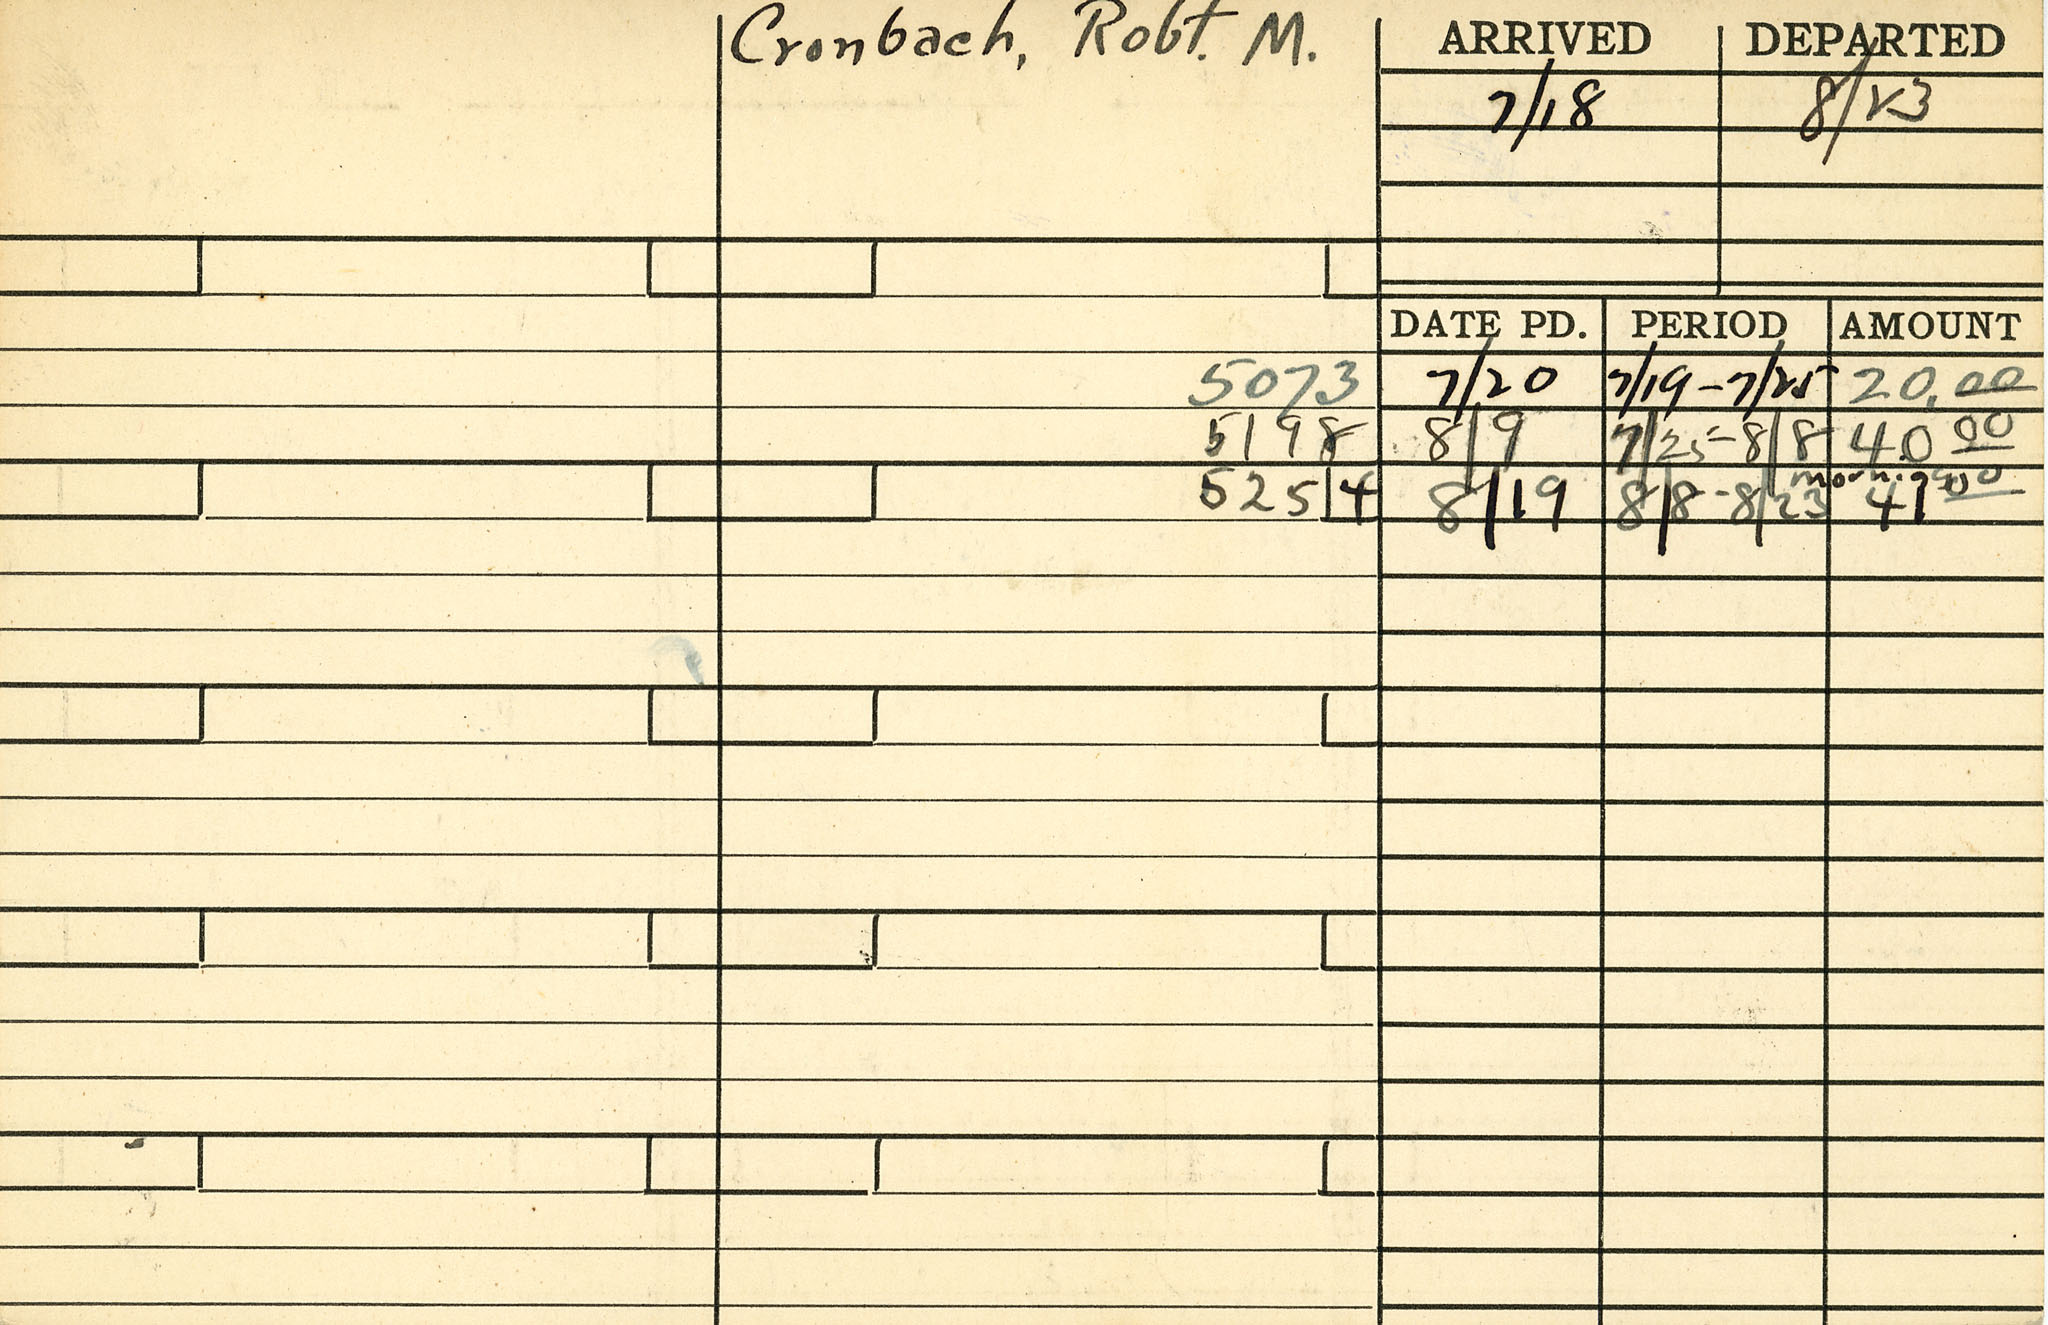 Cronbach, Robt. M.
ARRIVED DEPARTED
7/18 8/23
DATE PD. PERIOD AMOUNT
5073 7/20 7/19-7/25 20.00
5198 8/9 7/25-8/8 40 00
morning
5254 8/19 8/8-8/23 41 00